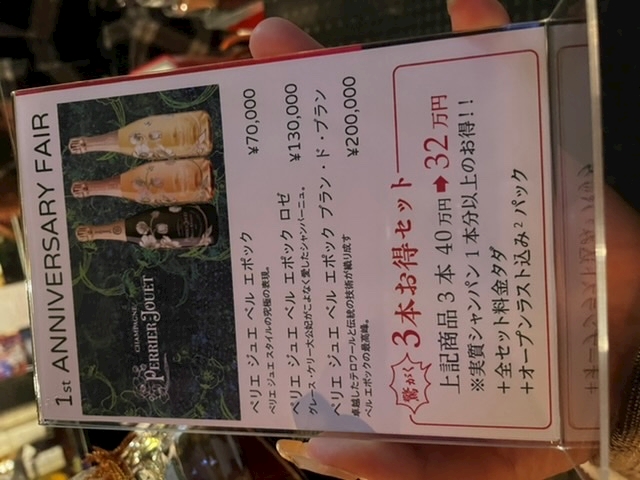 1st ANNIVERSARY FAIR
CHAMPAGNE
PERRIER-JOUËT
ペリエ ジュエ ベル エポック ¥70,000
ペリエ ジュエ スタイルの究極の表現。
ペリエ ジュエ ベル エポック ロゼ ¥130,000
グレース・ケリー大公妃がこよなく愛したシャンパーニュ。
ペリエ ジュエ ベル エポック ブラン・ド・ブラン ¥200,000
卓越したテロワールと伝統の技術が織り成す
ベル エポックの最高峰。
驚がく 3本お得セット
上記商品3本 40万円➡32万円
※実質シャンパン1本分以上のお得!!
+全セット料金タダ
+オープンラスト込み²パック